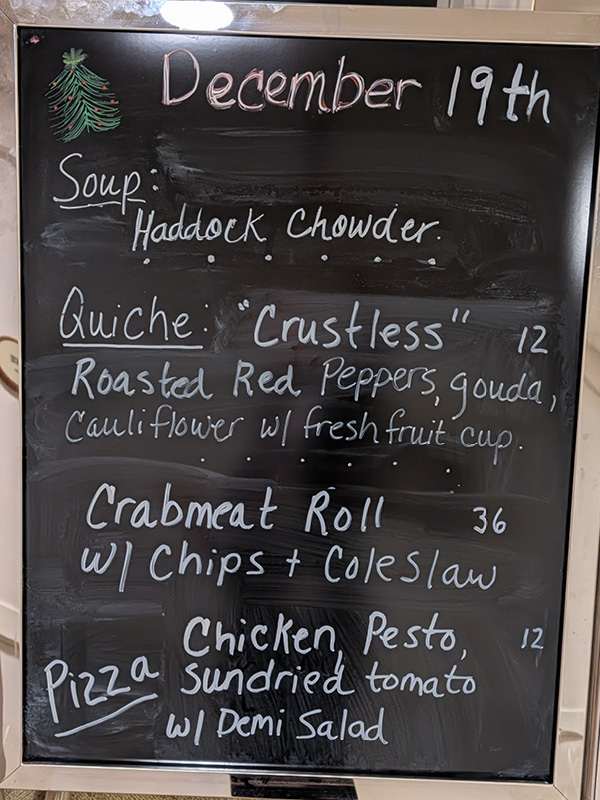 December 19th
Soup:
Haddock Chowder.
Quiche: "Crustless" 12
Roasted Red Peppers, gouda,
Cauliflower w/ fresh fruit cup.
Crabmeat Roll 36
w/ Chips + Coleslaw
Chicken, Pesto, 12
Pizza sundried tomato
w/ Demi Salad